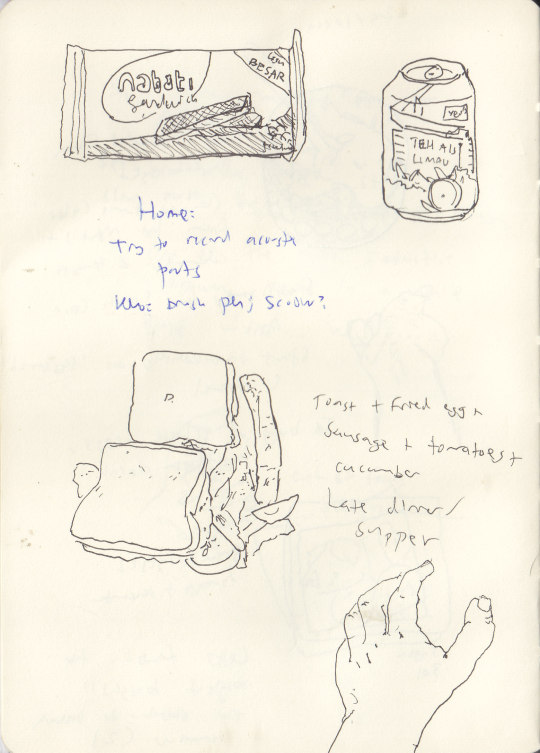 nabati
Sandwich
BESAR
Yeo
TEH AIS
LIMAU
Home:
Try to record acoustic
parts
brush pen,
Toast + fried egg +
Sausage + tomatoes +
cucumber
Late dinner/
supper